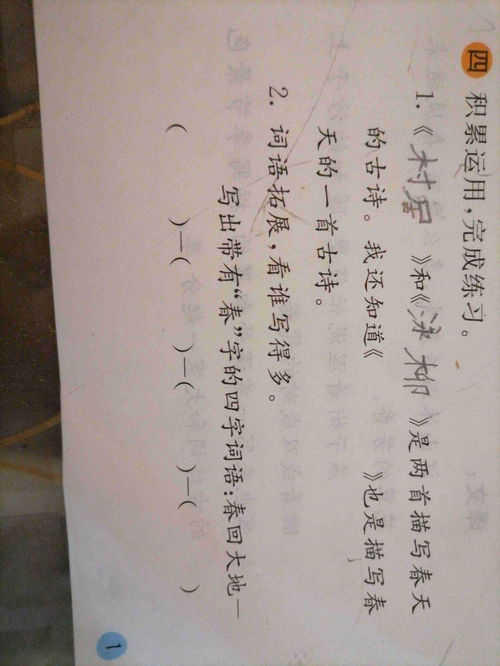 四 积累运用，完成练习。
1.《村居》和《泳柳》是两首描写春天
的古诗。我还知道《 》也是描写春
天的一首古诗。
2. 词语拓展，看谁写得多。
写出带有“春”字的四字词语：春回大地—
( )—( )—( )—( )
1